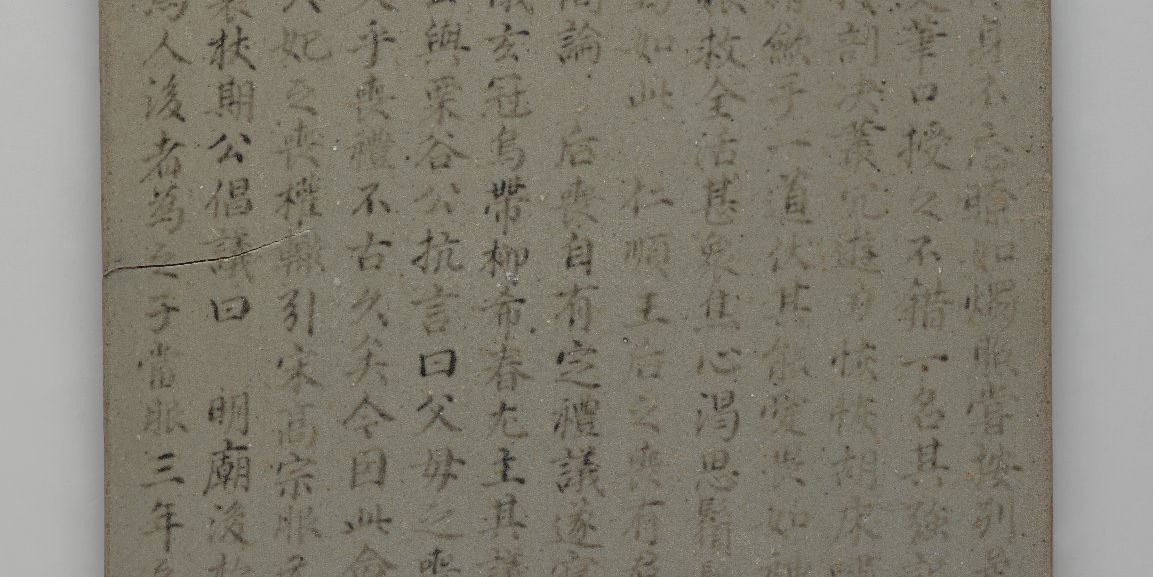 身不忘瞭如燭照嘗按列
筆口授之不錯一名其強
剖决叢冗遊刃恢恢胡床嘯
斂乎一道伏其能愛
賑救全活甚衆焦心渴思鬚
如此 仁順王后之喪有
論 后喪自有定禮議遂
玄冠烏帶柳希春尤主其議
與栗谷公抗言曰父母之喪
乎喪禮不古久矣今因此
妃之喪權 引宋高宗服
狀期公倡議曰 明廟後
人後者為之子當服三年